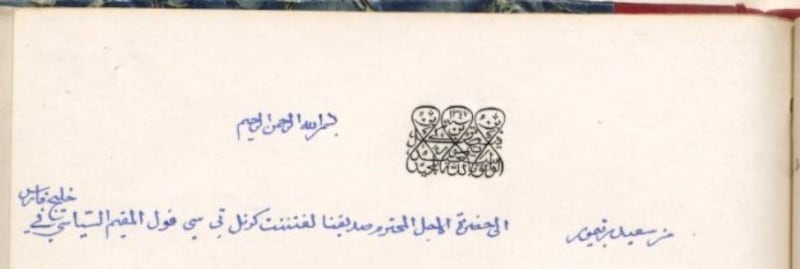 بسم الله الرحمن الرحيم
من سعيد بن تيمور الى حضرة الاجل المحترم صديقنا لفتننت كرنل تي سي فول المقيم السياسي في
خليج فارس